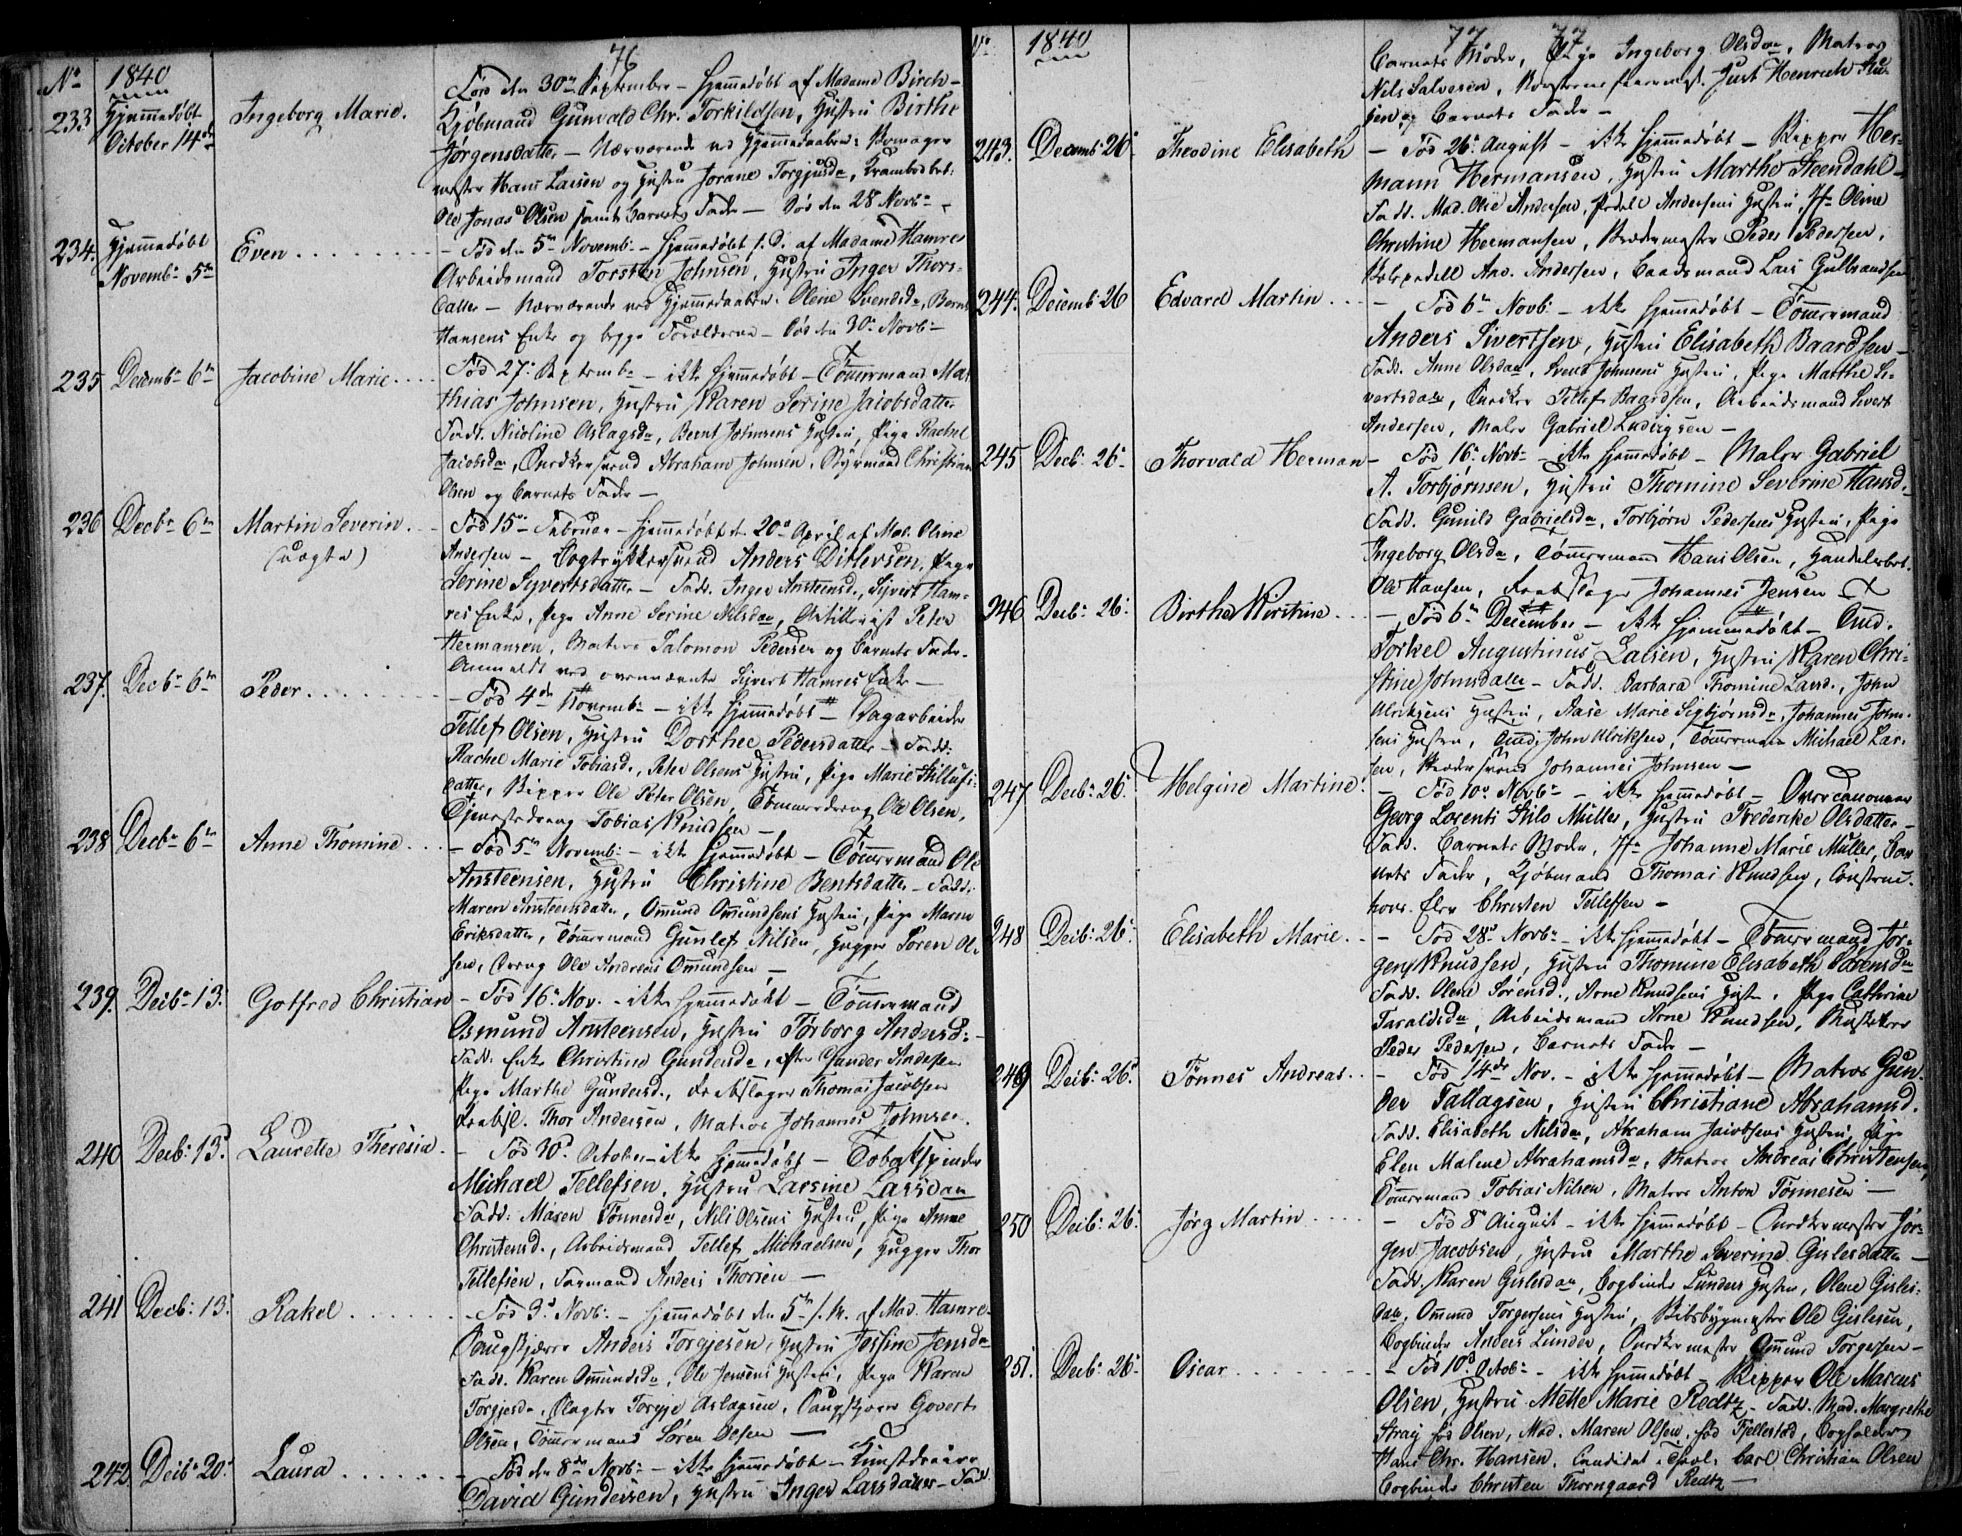 76
No 1840
233 Hjemmedøbt October 14de Ingeborg Marie.
Född den 30te September - Hjemmedøbt af Madame Birch -
Kjøbmand Gunvald Chr. Torkildsen, Hustru Birthe
Jørgensdatter - Nærværende ved Hjemmedaaben:
Hans Larsen og Hustru Jorane Torgjusdr,
Ole Jonas Olsen samt Barnets Fader - Död den 28 Novbr -
234. Hjemmedøbt Novembr 5te Even
- Född den 5te Novembr - Hjemmedøbt s. D. af Madame Hamre
Arbeidsmand Torsten Johnsen, Hustru Inger Thors-
datter - Nærværende ved Hjemmedaaben: Olene Svendsdr, Bernt
Hansens Enke og begge Forældrene - Död den 30te Novbr -
235 Decembr 6te Jacobine Marie
Född 27de Septembr - ikke hjemmedøbt - Tömmermand Mat-
thias Johnsen, Hustru Karen Serine Jacobsdatter
Fadd. Nicoline Aslagsdr, Bernt Johnsens Hustru, Pige Rachel
Jacobsdr, Snedkersvend Abraham Johnsen, Styrmand Christian
Olsen og Barnets Fader -
236 Decbr 6te Martin Severin.
(uægte)
- Född 15de Februar - hjemmedøbt den 20de April af Mad. Olene
Andersen - Bogtrykkersvend Anders Ditlevsen, Pige
Serine Syvertsdatter - Fadd. Inger Ansteensd., Sivert Ham-
res Enke, Pige Anne Serine Nilsdr, Artillerist Peter
Hermansen, Matros Salomon Pedersen og Barnets Fader.
Anmeldt ved ovennævnte Syvert Hamres Enke -
237. Decbr 6te Peder
- Född 4de Novembr - ikke hjemmedøbt - Dagarbeider
Tellef Olsen, Hustru Dorthee Pedersdatter - Fadd:
Rachel Marie Tobiasd., Peter Olsens Hustru, Pige Marie
datter, Skipper Ole Peter Olsen, Tömmerdreng Ole Olsen,
Tjenestedreng Tobias Knudsen -
238 Decbr 6te Anne Thomine
- Född 5te Novembr - ikke hjemmedøbt - Tömmermand Ole
Ansteensen, Hustru Christine Bentsdatter - Fadd:
Maren Ansteensdatter, Omund Omundsens Hustru, Pige Maren
Eriksdatter, Tömmermand Gunlef Nilsen, Hugger Soren Ol-
sen, Dreng Ole Andreas Omundsen -
239. Decbr 13. Gotfred Christian
- Född 16. Nov. - ikke hjemmedøbt - Tömmermand
Osmund Ansteensen, Hustru Torborg Andersd. -
Fadd. Enke Christine Gundersdr,
Pige Marthe Gundersd., Rebslager Thomas Jacobsen
Rebsl. Thor Andersen, Matros Johannes Johnsen.
240 Decbr 13. Laurette Theresia.
- Född 30. October - ikke hjemmedøbt - Tobakspinder
Michael Tellefsen, Hustru Larsine Larsdatter
Fadd: Maren Tönnesdr, Nils Olsens Hustru, Pige Anne
Christensd., Arbeidsmand Tellef Michaelsen, Hugger Thor
Tellefsen, Formand Anders Thorsen -
241 Decb: 13. Rakel
- Född 3. Novb: - hjemmedøbt den 5te s. M. af Mad. Hamre -
Anders Torgjesen, Hustru Josfine Jensdr
Fadd. Karen Omundsdr, Ole Jensens Hustru, Pige Karen
Torgjesdr, Slagter Torgje Aslagsen, Govert
Olsen, Tömmermand Sören Olsen -
242. Decbr 20. Laura
- Född den 8de Novbr - ikke hjemmedøbt - Kunstdreier
David Gundersen, Hustru Inger Larsdatter - Fadd.
77 77
No 1840
Barnets Moder, Pige Ingeborg Olsdr, Matros
Nils Salvesen, Just Henrich
og Barnets Fader -
243. Decemb: 26. Theodine Elisabeth
- Född 26. August - ikke hjemmedøbt - Skipper Her-
mann Hermansen, Hustru Marthe Steendahl -
Fadd. Mad. Olie Andersen, Pedell Andersens Hustru, Jfr Oline
Christine Hermansen, Peder Pedersen,
Andersen, Baadsmand Lars Gulbrandsen
244. Decemb: 26 Edvard Martin
- Född 6te Novb: - ikke hjemmedøbt - Tömmermand
Anders Sivertsen, Hustru Elisabeth Baardsen -
Fadd. Anne Olsdatter, Svend Johnsens Hustru, Pige Marthe Si-
vertsdatter, Snedker Tellef Baardsen, Arbeidsmand Sivert
Andersen, Maler Gabriel Ludvigsen -
245 Decb: 26. Thorvald Herman
- Född 16. Novbr - ikke hjemmedøbt - Maler Gabriel
A. Torbjørnsen, Hustru Thomine Severine Hansd.
Fadd. Gunild Gabrielsdr, Torbjørn Pedersens Hustru, Pige
Ingeborg Olsdr, Tömmermand Hans Olsen, Handelsbet.
Ole Hansen, Rebslager Johannes Jensen
246 Decb: 26. Birthe Kirstine
- Född 6te December - ikke hjemmedøbt -
Torkel Augustinus Larsen, Hustru Karen Chri-
stine Johnsdatter - Fadd. Barbara Thomine Larsd., John
Ulriksens Hustru, Aase Marie Sigbjørnsdr, Johannes John-
sens Hustru, John Ulriksen, Tömmermand Michael Lar-
sen, Johannes Johnsen -
247 Decbr 26. Helgine Martine
- Född 10. Novbr - ikke hjemmedøbt - Overcanoneer
Georg Lorents Stilo Müller, Hustru Frederike Olsdatter -
Fadd. Barnets Moder, Jfr Johanne Marie Müller, Bar-
nets Fader, Kjöbmand Thomas Knudsen,
Elev Christen Tellefsen -
248 Decb: 26. Elisabeth Marie
- Född 28. Novbr - ikke hjemmedøbt - Tömmermand Jör-
gen Knudsen, Hustru Thomine Elisabeth Sorensdr
Fadd. Olene Sörensd., Arne Knudsens Hustru, Pige Cathrine
Taraldsdr, Arbeidsmand Arne Knudsen, Musketeer
Peder Pedersen, Barnets Fader -
249 Decb: 26. Tönnes Andreas
- Född 14de Nov. - ikke hjemmedøbt - Matros Gun-
der Tallagsen, Hustru Christiane Abrahamsd.
Fadd. Elisabeth Nilsdr, Abraham Jacobsens Hustru, Pige
Elen Malene Abrahamsdr, Matros Andreas Christensen,
Tömmermand Tobias Nilsen, Matros Anton Tönnesen -
250 Decb: 26. Jörg Martin
- Född 8. August - ikke hjemmedøbt - Snedkermester Jör-
gen Jacobsen, Hustru Marthe Severine Gislesdatter -
Fadd. Karen Gislesdatter, Bogbinder Lunders Hustru, Olene Gisles-
datter, Omund Torgersens Hustru, Skibsbygmester Ole Gislesen,
Bogbinder Anders Lunder, Snedkermester Omund Torgersen -
251. Decb: 26. Oscar
- Född 10. Octobr - ikke hjemmedøbt - Skipper Ole Marcus
Olsen, Hustru Mette Marie Redtz - Fadd. Mad. Margrethe
Straij fød Olsen, Mad. Maren Olsen fød Fjellestad, Bogholder
Hans Chr. Hansen, Candidat Theol. Carl Christian Olsen
Bogbinder Christen Thorngaard Redtz -